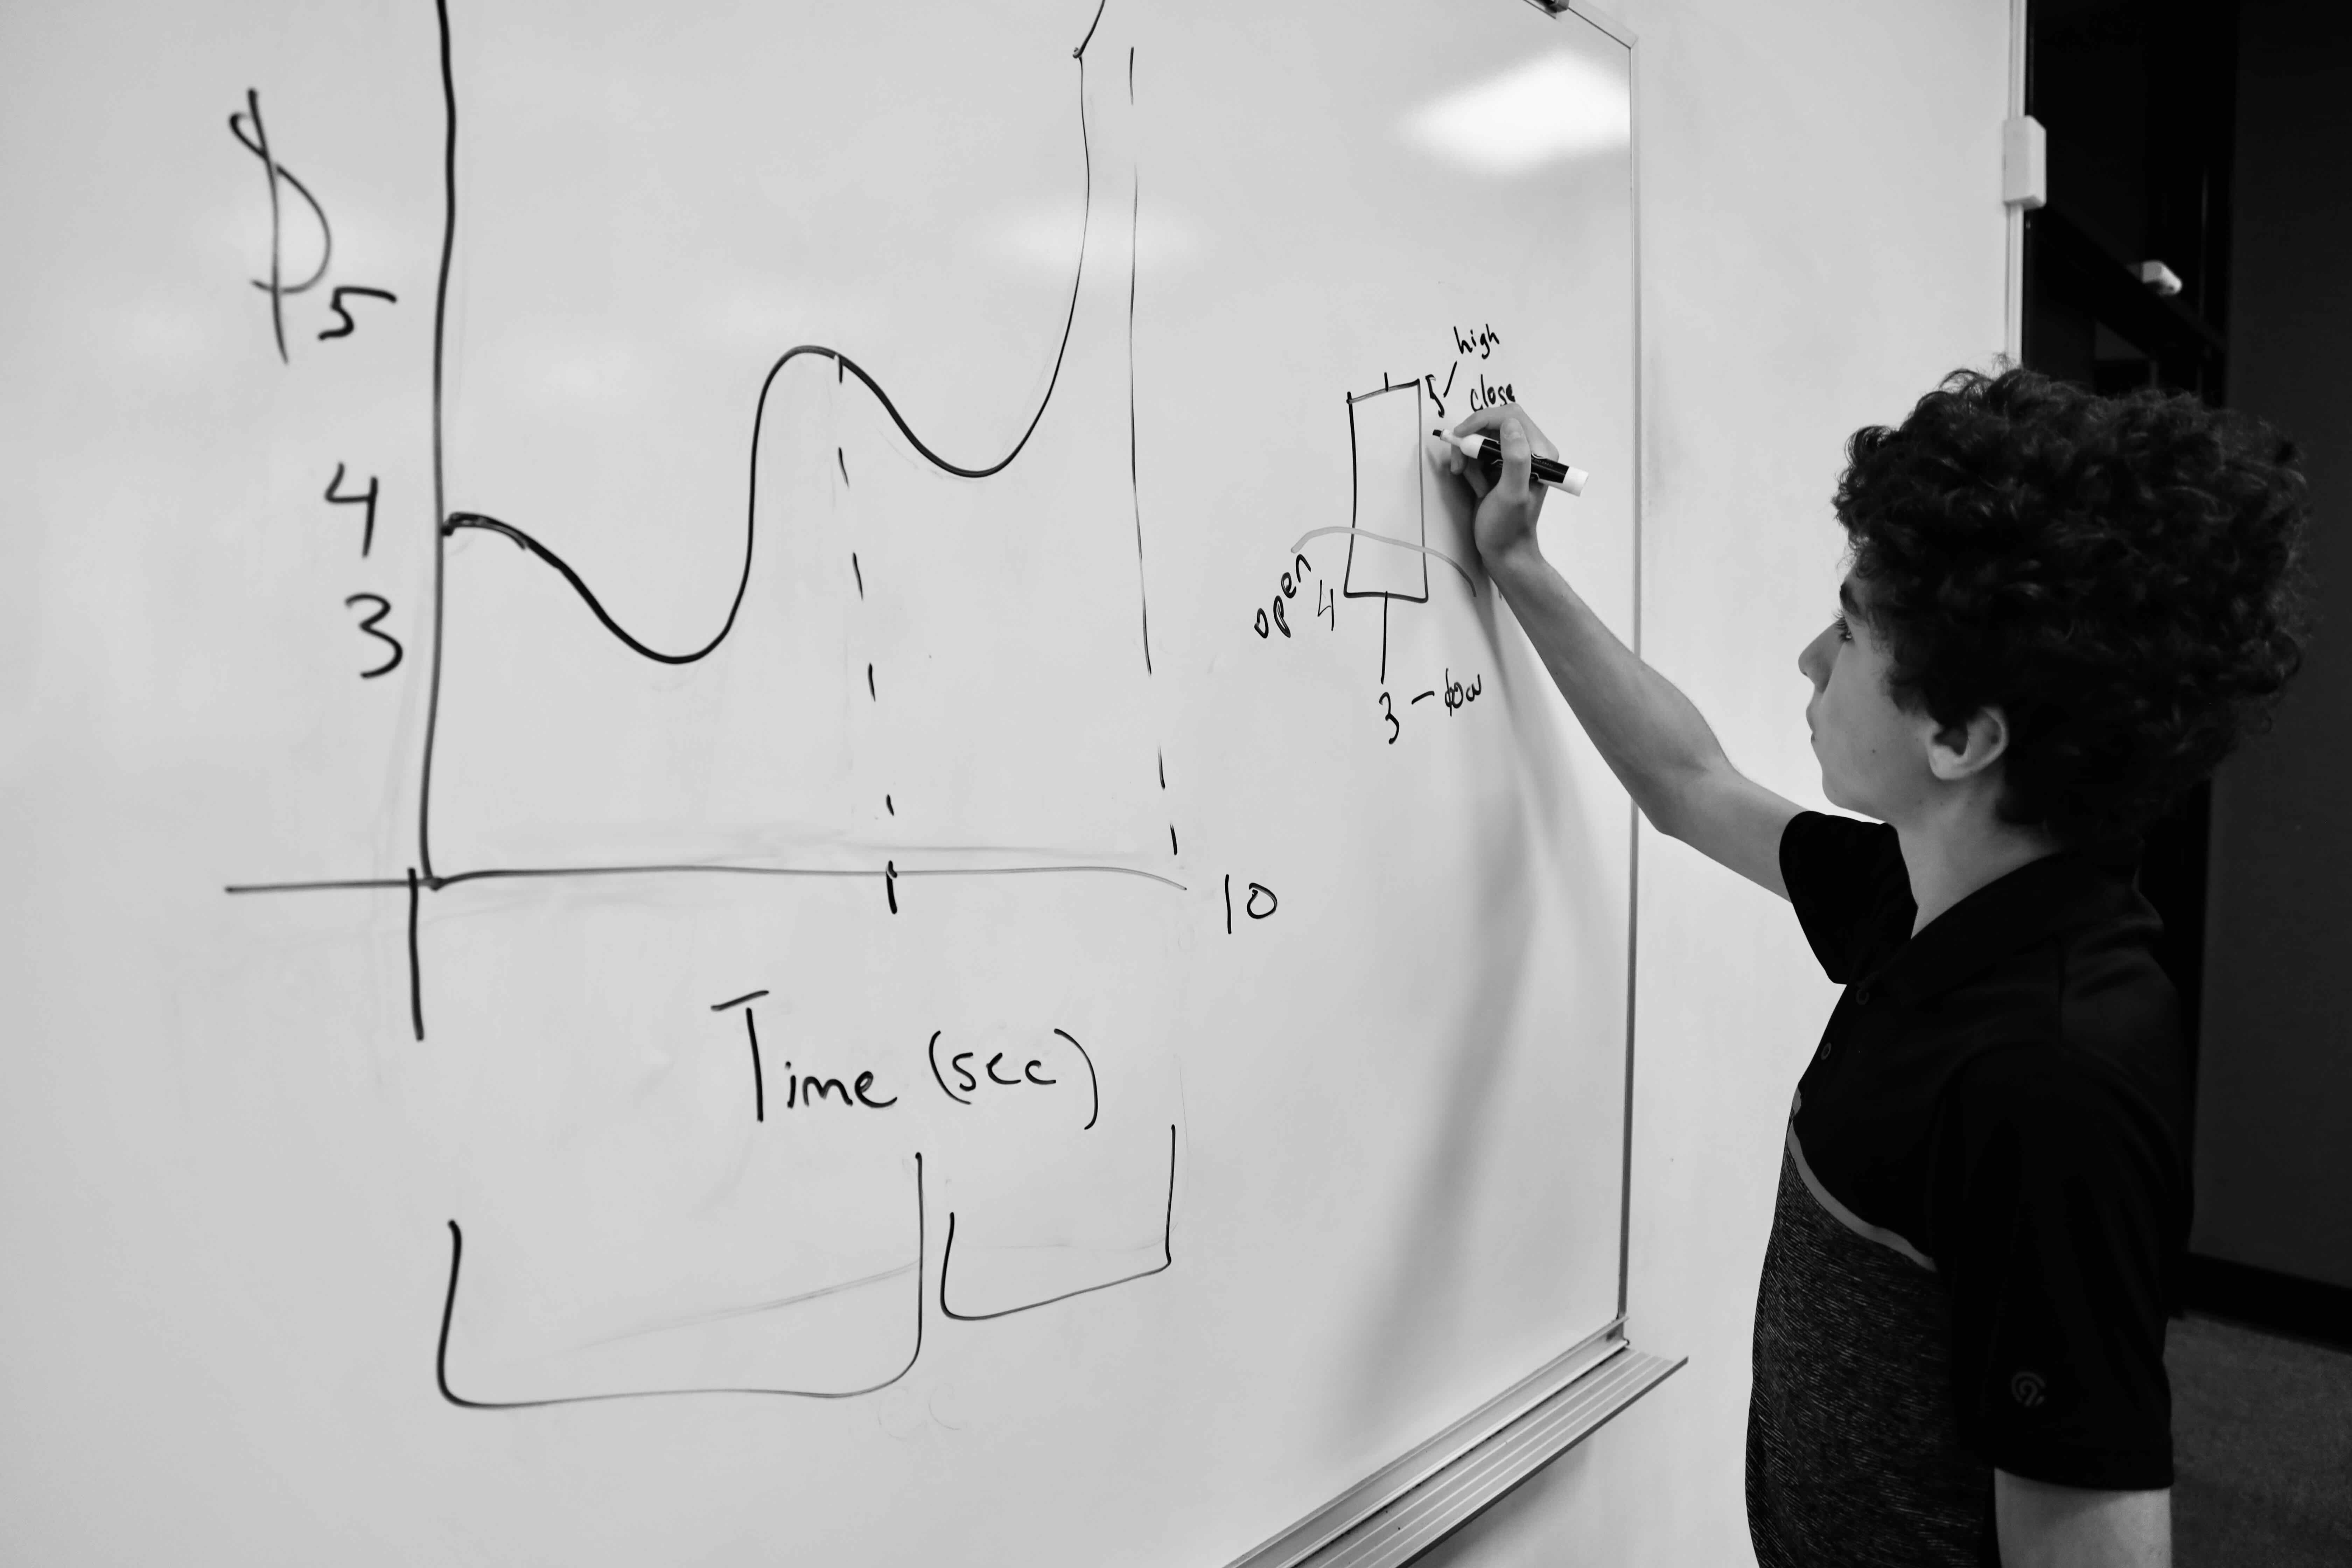 $
5
4
3
10
Time (sec)
high
5
close
open
4
3 - low